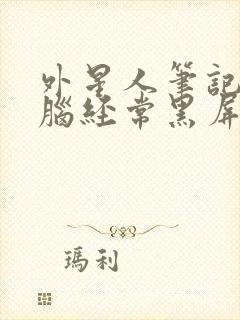 外星人筆記
腦經常黑屏
瑪利